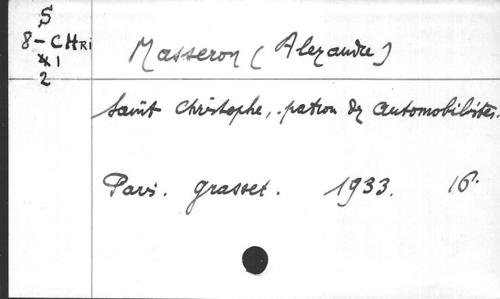 S
8-CHRi
41
2
Masseron (Alexandre)
Saint Christophe, patron des automobilistes.
Paris. Grasset. 1933. 16°